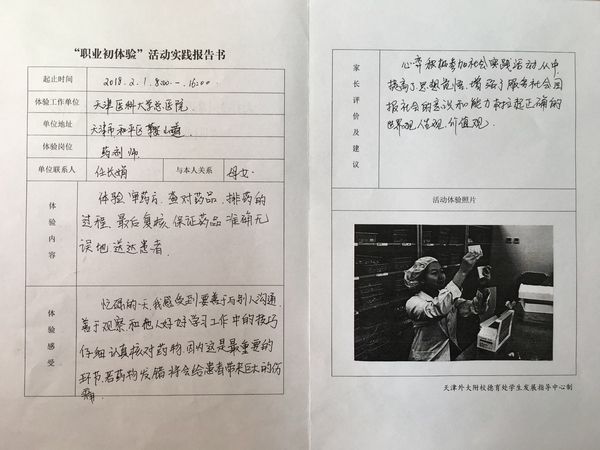 “职业初体验”活动实践报告书
起止时间 2018.2.1. 8:00 — 16:00
体验工作单位 天津医科大学总医院
单位地址 天津市和平区鞍山道
体验岗位 药剂师
单位联系人 任长娟 与本人关系 母女
体验内容
体验 审药方、查对药品、排药的
过程、最后复核、保证药品准确无
误地送达患者.
体验感受
忙碌的一天,我感受到要善于与别人沟通,
善于观察和他人好好学习工作中的技巧
仔细认真核对药物,因为这是最重要的
环节,若药物发错将会给患者带来巨大的伤
痛.
家长评价及建议
积极参加社会实践活动,从中
提高了思想觉悟,增强了服务社会回
报社会的意识和能力,树立起正确的
世界观、人生观、价值观.
活动体验照片
天津外大附校德育处学生发展指导中心制